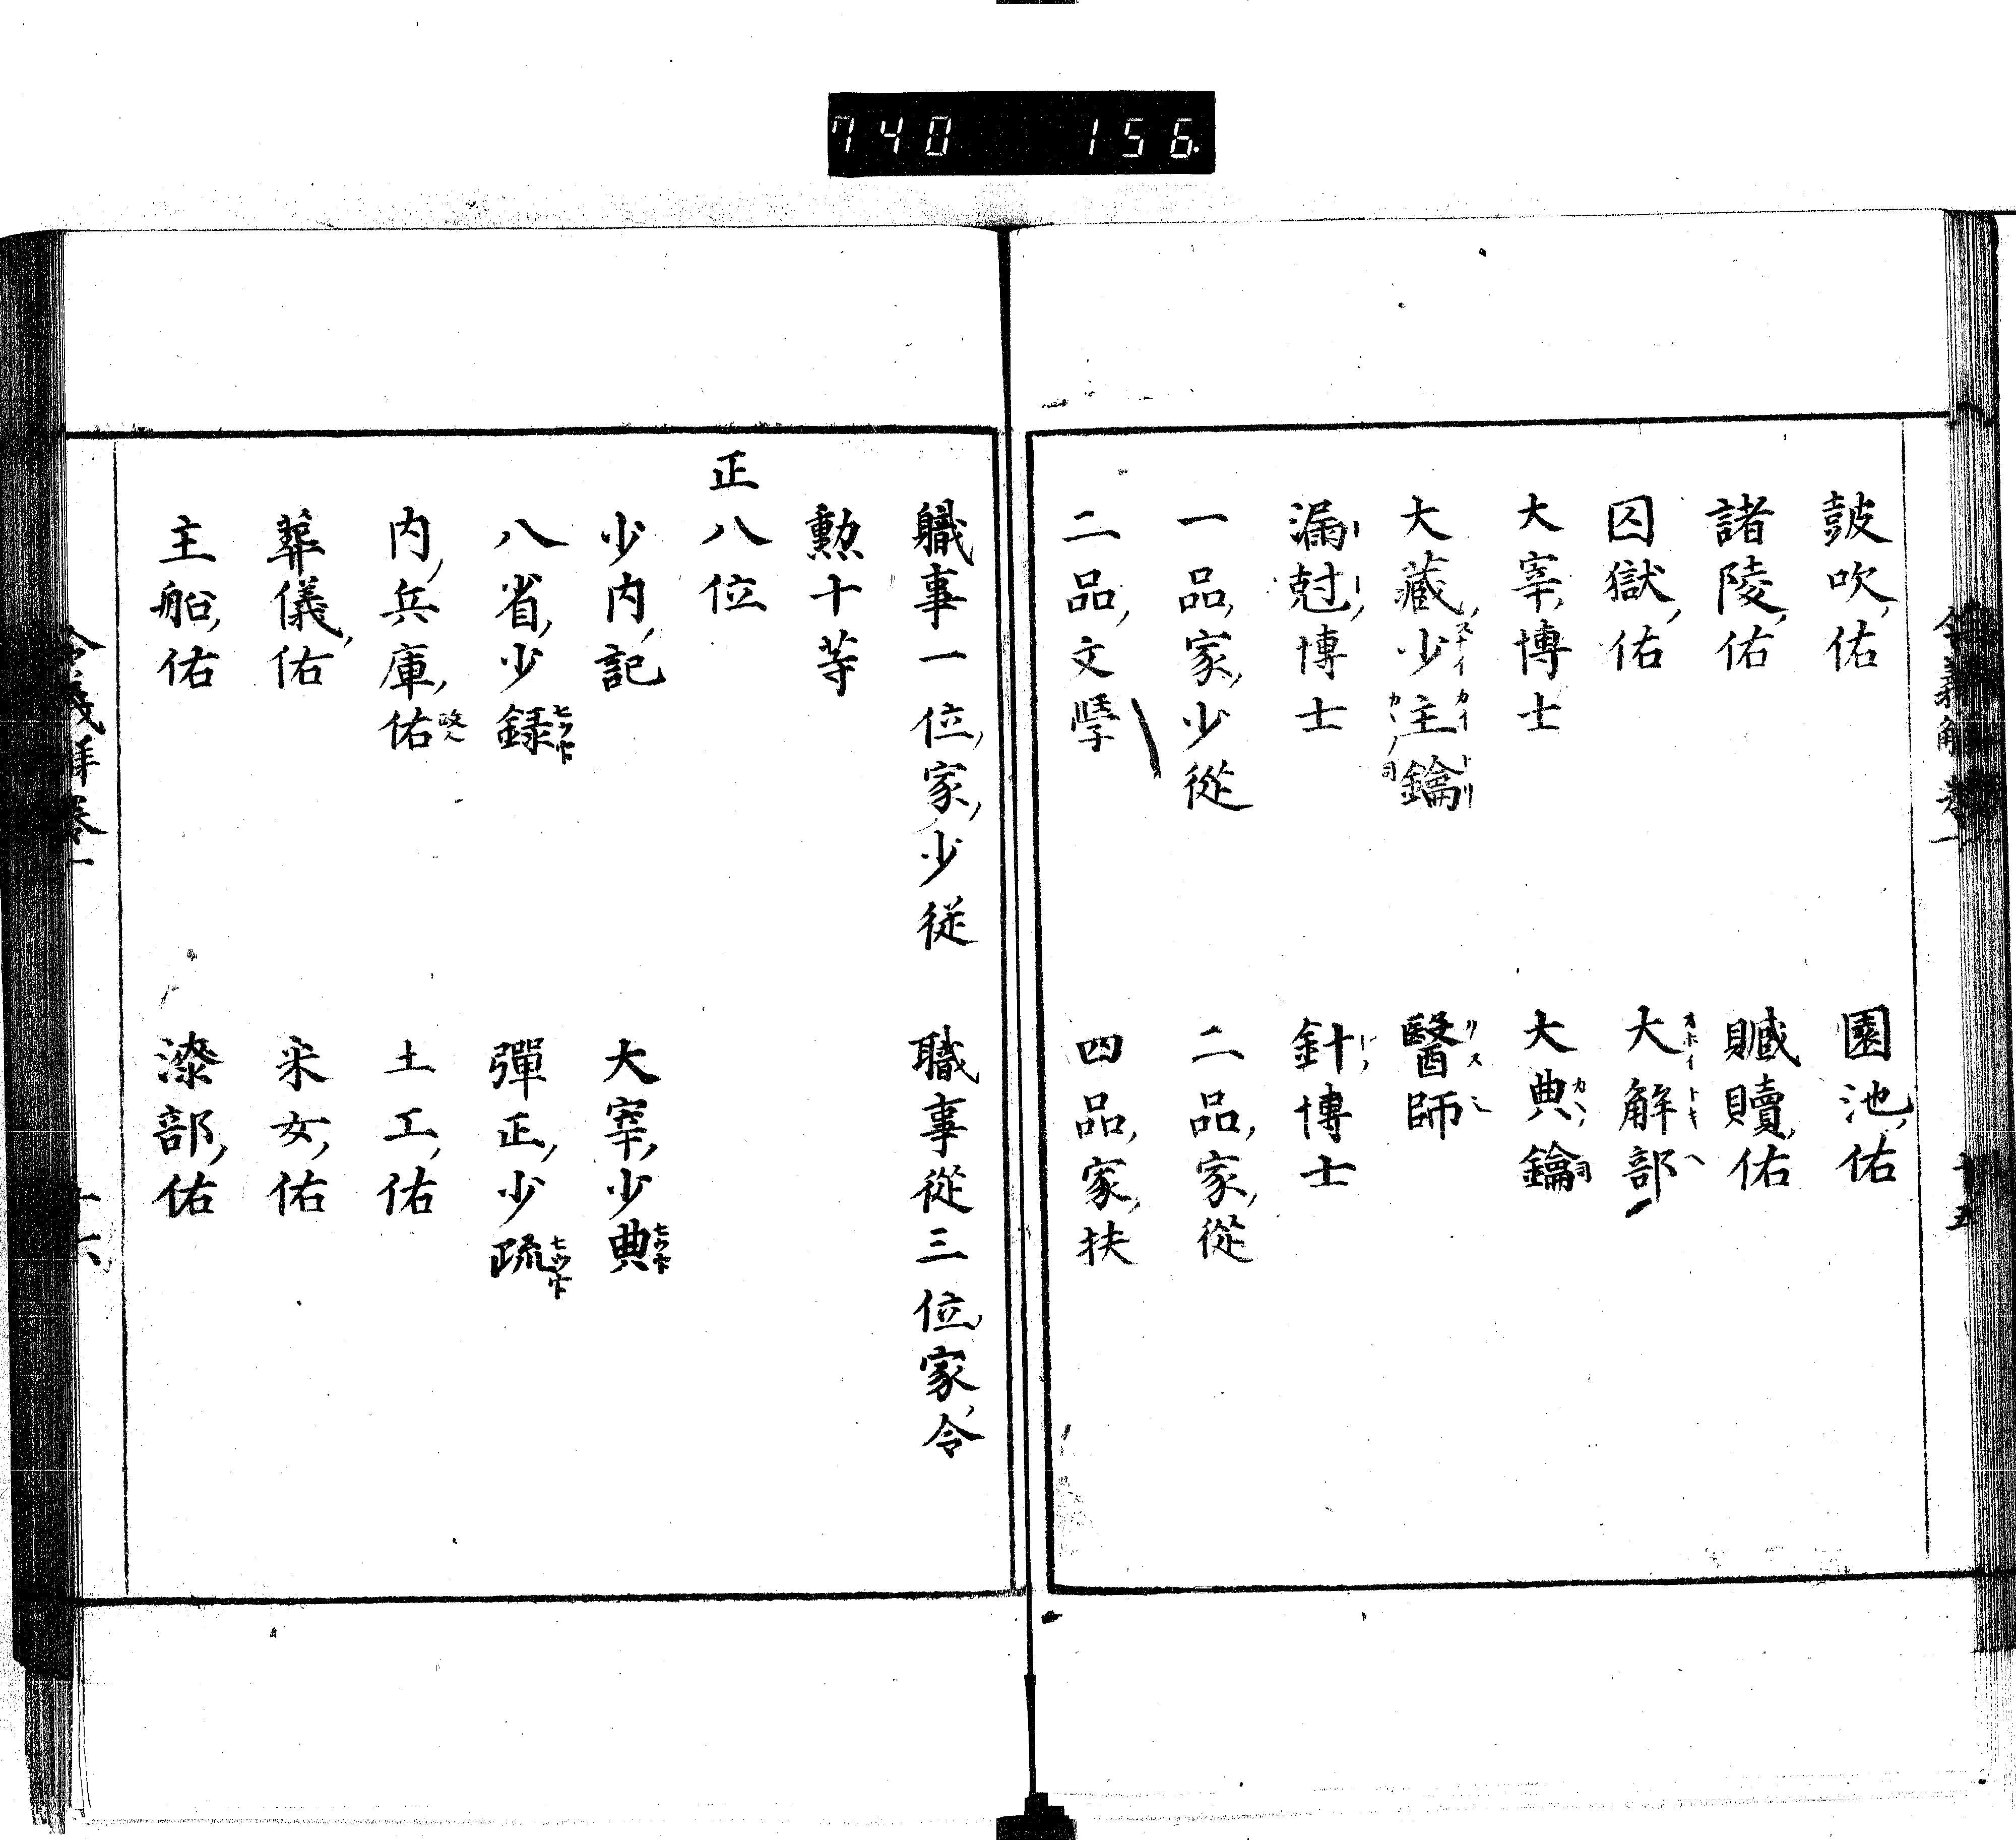 740 156
鼓吹佑 園池佑
諸陵佑 贓贖佑
囚獄佑 大解部
大宰博士 大典鑰
大藏少主鑰 醫師
漏尅博士 針博士
一品家少從 二品家從
二品文學 四品家扶
職事一位家少從 職事從三位家令
勲十等
正八位
少内記 大宰少典
八省少録 彈正少疏
内兵庫佑 土工佑
葬儀佑 采女佑
主船佑 漆部佑